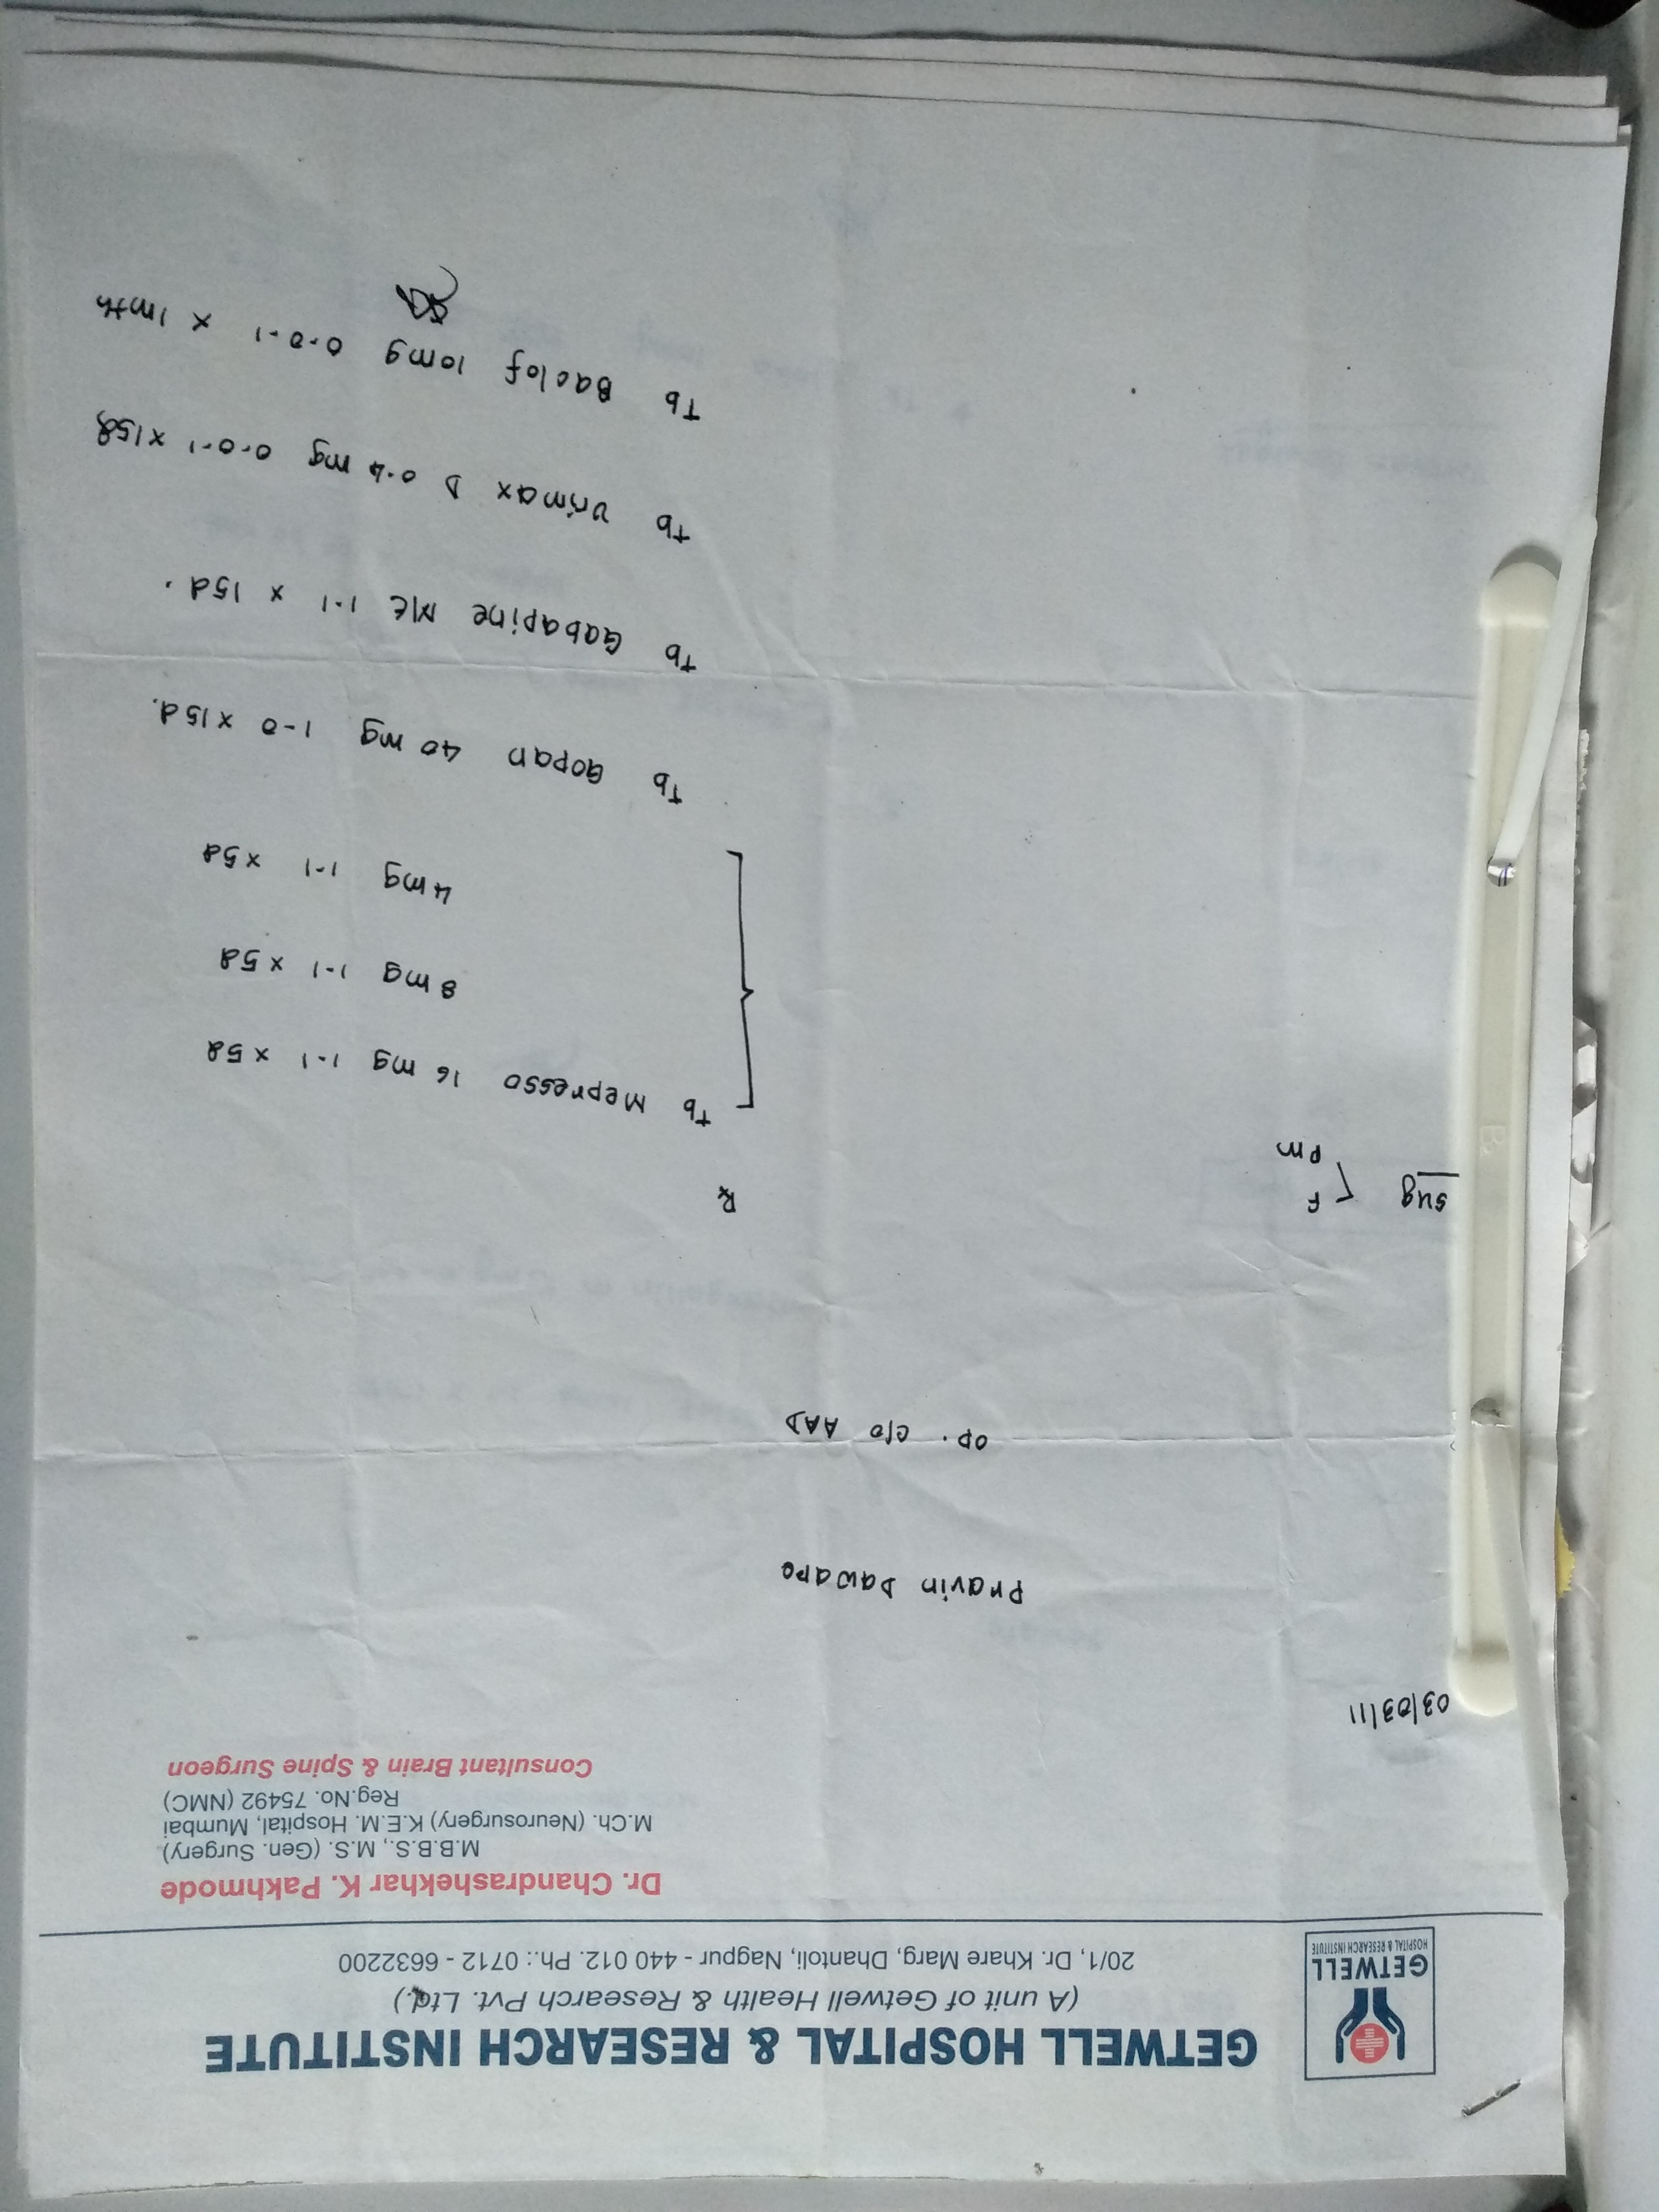 GETWELL
HOSPITAL & RESEARCH INSTITUTE
GETWELL HOSPITAL & RESEARCH INSTITUTE
(A unit of Getwell Health & Research Pvt. Ltd.)
20/1, Dr. Khare Marg, Dhantoli, Nagpur - 440 012. Ph.: 0712 - 6632200
Dr. Chandrashekhar K. Pakhmode
M.B.B.S., M.S. (Gen. Surgery)
M.Ch. (Neurosurgery) K.E.M. Hospital, Mumbai
Reg.No. 75492 (NMC)
Consultant Brain & Spine Surgeon
03/03/11
Pravin Daware
OP. c/o AAD
Sug F
Pm
Rx
Tb Mepresso 16 mg 1-1 x 5d
8 mg 1-1 x 5d
4 mg 1-1 x 5d
Tb Gopan 40 mg 1-0 x 15d.
Tb Gabapine ME 1-1 x 15d.
Tb Urimax D 0.4 mg 0-0-1 x 15d
Tb Baclof 10mg 0-0-1 x 1mth